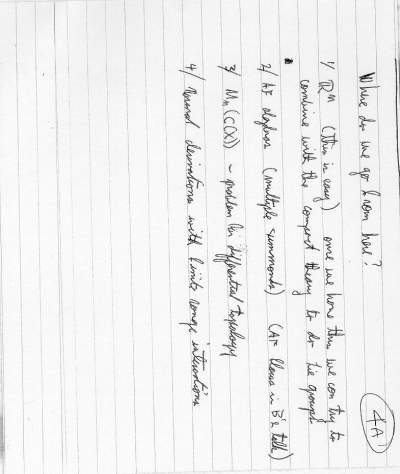 4A
Where do we go from here?
1/ ℝⁿ (this is easy) once we have this we can try to
combine with the compact theory to do Lie groups
2/ AF algebras (multiple summands) (AF flows in B's talk)
3/ Mₙ(C(X)) ~ problem in differential topology
4/ Normal derivations with finite range interactions